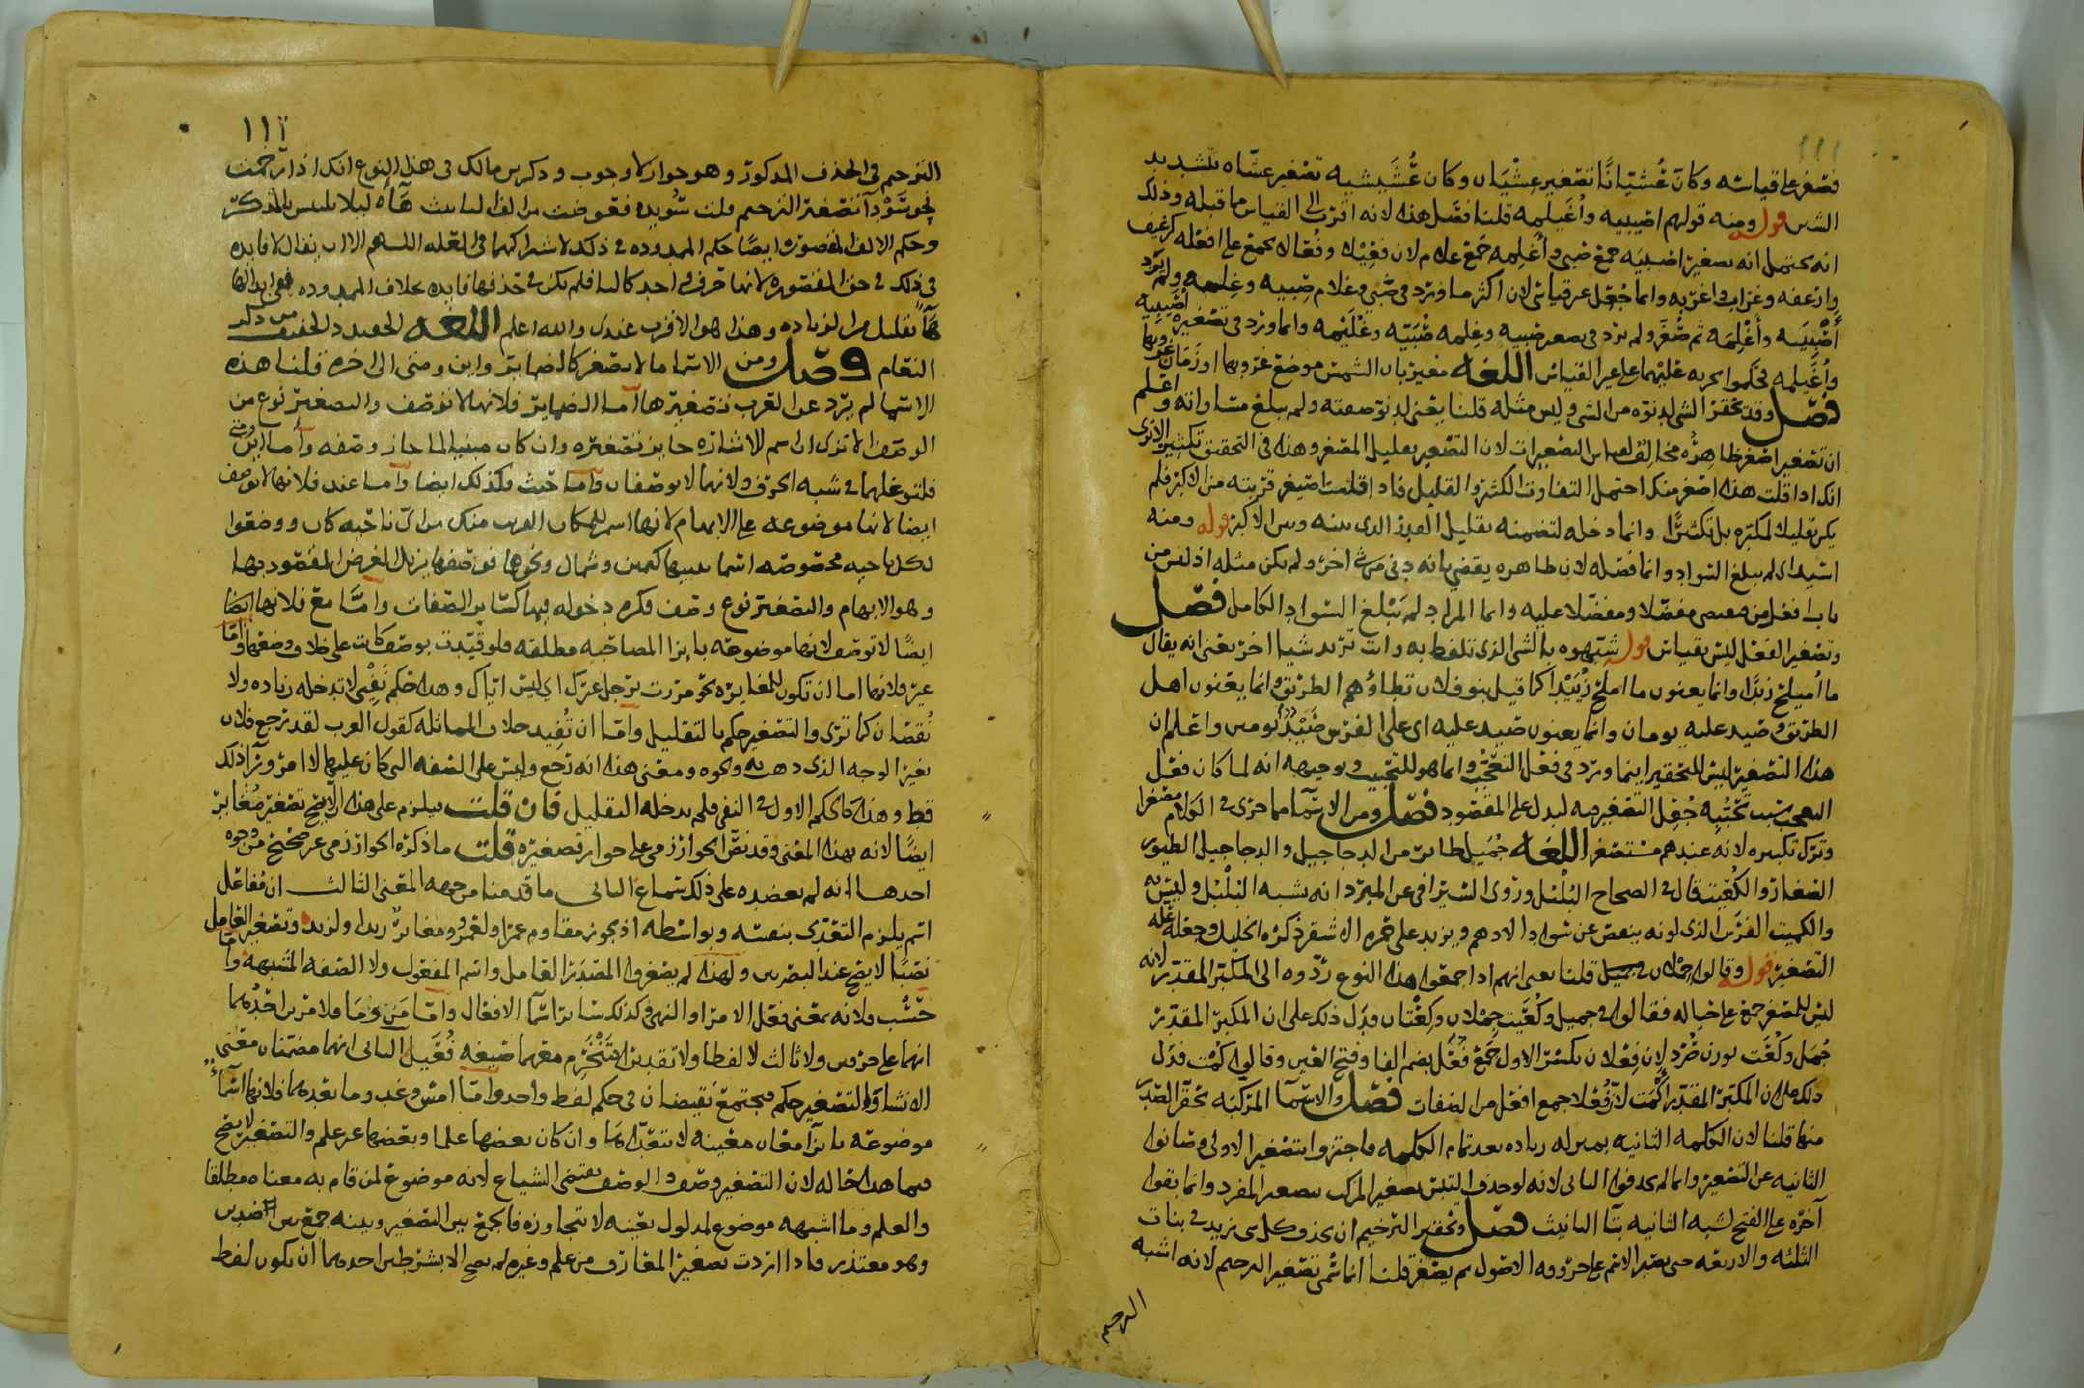 فصغر على قياسه وكان عُشَيّانًا تصغير عشيان وكان عُشَيشيه تصغير عشاه بتشديد
الشين قوله ومنه قولهم اصيبيه واُغَيلمه قلنا فصل هذه لانه اقرب الى القياس مما قبله وذلك
انه يحتمل انه تصغير اصبيَه جمع صبي واُغلمه جمع غلام لان فعيلا وفُعالا يجمع على افعله كرغيف
وارغفه وغراب واغربه وانما جُعل عن قياس لان اكثر ما ورد في صبي وغلام صبيه وغلمه ولم يرد
أَصْبِيَه وأَغْلِمَه ثم صُغّر ولم يرد في تصغير صبيه وغلمه صُبَيّه وغُلَيْمه وانما ورد في تصغيره اُصيبيه
واُغَيلمه على غير القياس اللغه مغيربان الشمس موضع غروبها او زمان غروبها
فصل وقد يحقر الشي لدنوه من الشي وليس مثله قلنا يعني لدنو صفته ولم يبلغ مساواته واعلم
ان تصغير اصغر ظاهره مخالف لقياس التصغيرات لان التصغير تقليل المصغر وهذا في التحقيق تكثير الا ترى
انك اذا قلت هذا اصغر منك احتمل التفاوت الكثير والقليل فاذا قلت اصيغر قربته من الاكبر فلم
يكن تقليلا لمكبره بل تكثيرًا وانما دخله لتضمنه تقليل القدر الذي بينه وبين الاكبر قوله ومنه
اسيد اي لم يبلغ السواد وانما فصله لان ظاهره يقضي بانه دنى من شي اخر ولم يكن مثله اذ ليس من
باب افعل من فصل
وتصغير الفعل ليس بقياس قوله شبهوه بالشي الذي تلفظ به وانت تريد شيا اخر يعني انه يقال
ما اُميلح زيدًا وانما يعنون ما املح زُيَيْدًا كما قيل بنو فلان تطاؤهم الطريق وانما يعنون اهل
الطريق وصيد عليه يومان وانما يعنون صيد عليه اي على الفرس صَيْدُ يومين واعلم ان
هذا التصغير ليس للتحقير اينما ورد في فعل التعجب وانما هو للتحبيب وتوجيهه انه لما كان فعل
التعجب جُعل التصغير فيه ليدل على المقصود فصل ومن الاسما ما جرى في الكلام مصغرا
وترك تكبيره لانه عندهم مستصغر اللغه جُميل طائر من الدجاجيل والدجاجيل الطيور
الصغار والكُعَيت قال في الصحاح البُلْبُل وروى السيرافي عن المبرد انه يشبه البُلْبُل وليس به
والكميت الفرس الذي لونه ينقص عن سواد الادهم ويزيد على حمره الاشقر ذكره الخليل وجعله عله
التصغير قوله وقالوا جملان في جميل قلنا يعني انهم اذا جمعوا هذا النوع ردوه الى المكبر المقدر لانه
ليس للمصغر جمع على حياله فقالوا في جميل وكُعَيت جِملان وكِعْتان فدل ذلك على ان المكبر المقدر
جُمَل وكُعَت بوزن صُرَد لان فعلان بكسر الاول جمع فُعَل بضم الفا وفتح العين وقالوا كُمْت فدل
ذلك على ان المكبر المقدر اكمت لان فُعْلا جمع افعل من الصفات فصل والاسما المركبه يحقر الصدر
منها قلنا لان الكلمه الثانيه بمنزله زياده بعد تمام الكلمه فاجتزوا بتصغير الاولى وصانوا
الثانيه عن التصغير وانما لم يحذفوا الثاني لانه لو حذف التبس تصغير المركب بتصغير المفرد وانما بقوا
آخره على الفتح لشبه الثانيه بتا التانيث فصل وتحقير الترخيم ان يحذف كل شي زيد في بنات
الثلثه والاربعه حتى يصير الاسم على حروفه الاصول ثم يصغر قلنا انما سُمي تصغير الترخيم لانه اشبه
الترخيم
١١١
الترخيم في الحذف المذكور وهو جواز لا وجوب وذكر بن مالك في هذا النوع انك اذا رخمت
نحو سَوْدآ بتصغير الترخيم قلت سُويده فعوضت من الف التانيث هآء ليلا يلبس بالمذكر
وحكم الالف المقصوره ايضًا حكم الممدوده في ذلك لاشتراكهما في العله اللهم الا ان يقال لا فايده
في ذلك في حق المقصوره لانها حرف واحد كالتا فلم يكن في حذفها فايده بخلاف الممدوده ففي ابدالها
هآ تقليل من الزياده وهذا هو الاقرب عندي والله اعلم اللغه الحفيدد الخفيف من ذكر
النعام فصل ومن الاسما ما لا يصغر كالضماير واين ومتى الى اخره قلنا هذه
الاسما لم يرد عن العرب تصغيرها اما الضماير فلانها لا توصف والتصغير نوع من
الوصف الا ترى ان اسم الاشاره جايز تصغيره وان كان مبنيا لما جاز وصفه واما اين ومتى
فلتوغلهما في شبه الحرف ولانهما لا يوصفان واما حيث فكذلك ايضا واما عند فلانها لا توصف
ايضا لانها موضوعه على الابهام لانها اسم للمكان القريب منك من اي ناحيه كان ووضعوا
لكل ناحيه مخصوصه اسما كيمين وشمال ونحوها فوصفها يزيل الغرض المقصود بها
وهو الابهام والتصغير نوع وصف فكره دخوله فيها كساير الصفات وامّا مع فلانها ايضا
ايضًا لا توصف لانها موضوعه بازا المصاحبه مطلقه فلو قيّدت بوصف كانت على خلاف وضعها وامّا
غير فلانها اما ان تكون للمغايره نحو مررت برجل غيرك اي ليس اياك وهذا حكم نَفْي لا تدخله زياده ولا
نُقصان كما ترى والتصغير حكم بالتقليل وامّا ان تُفيد خلاف المماثله كقول العرب لقد رجع فلان
بغير الوجه الذي ذهب به ونحوه ومعنى هذا انه رجع وليس على الصفه التي كان عليها لا امر ورآ ذلك
قط وهذا كالحكم الاول في النفي فلم يدخله التقليل فان قلت فيلزم على هذا الا يصح تصغير مُغاير
ايضًا لانه بهذا المعنى وقد نصّ الخوارزمي على جواز تصغيره قلت ما ذكره الخوارزمي غير صحيح من وجوه
احدها انه لم يعضده على ذلك سماع الثاني ما قدمنا من جهه المعنى الثالث ان مُفاعل
اسم يلزم التعدي بنفسه وبواسطه اذ يجوز مقاوم عمرا ولعمرو ومغايرٌ زيدا ولزيد وتصغير العامل
نصبًا لا يصح عند البصريين ولهذا لم يصغروا المصدر العامل واسم المفعول ولا الصفه المشبهه وامّا
حَسْب فلانه بمعنى فعل الامر او النهي وكذلك ساير اسما الافعال وامّا مَن ومَا فلامرين احدُهما
انهما على حرفين ولا ثالث لا لفظا ولا تقديرا فَتَنْخَرِم معهما صيغه فُعَيل الثاني انهما مضمنان معنى
الانشا والتصغير حكم فيجتمع نقيضان في حكم لفظ واحد وامّا امس وغد وما بعدهما فلانها اسماءٌ
موضوعه بازآ معان معينه لا تتعدّاها وان كان بعضها علما وبعضها غير علم والتصغير لا يصح
فيما هذا حاله لان التصغير وصف والوصف يقتضي الشياع لانه موضوع لمن قام به معناه مطلقا
والعلم وما اشبهه موضوع لمدلول بعينه لا يتجاوزه فالجمع بين التصغير وبينه جمع بين الضدين
وهو متعذر فاذا اردت تصغير المعارف من علم وغيره لم يصح الا بشرطين احدهما ان يكون لفظ